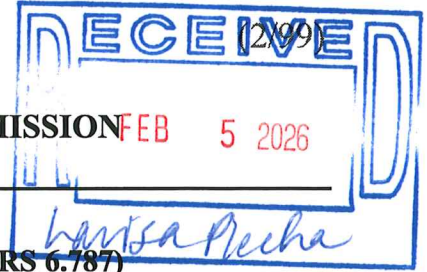 RECEIVED
(2/99)
MISSION
FEB 5 2026
Larisa Plecha
RS 6.787)